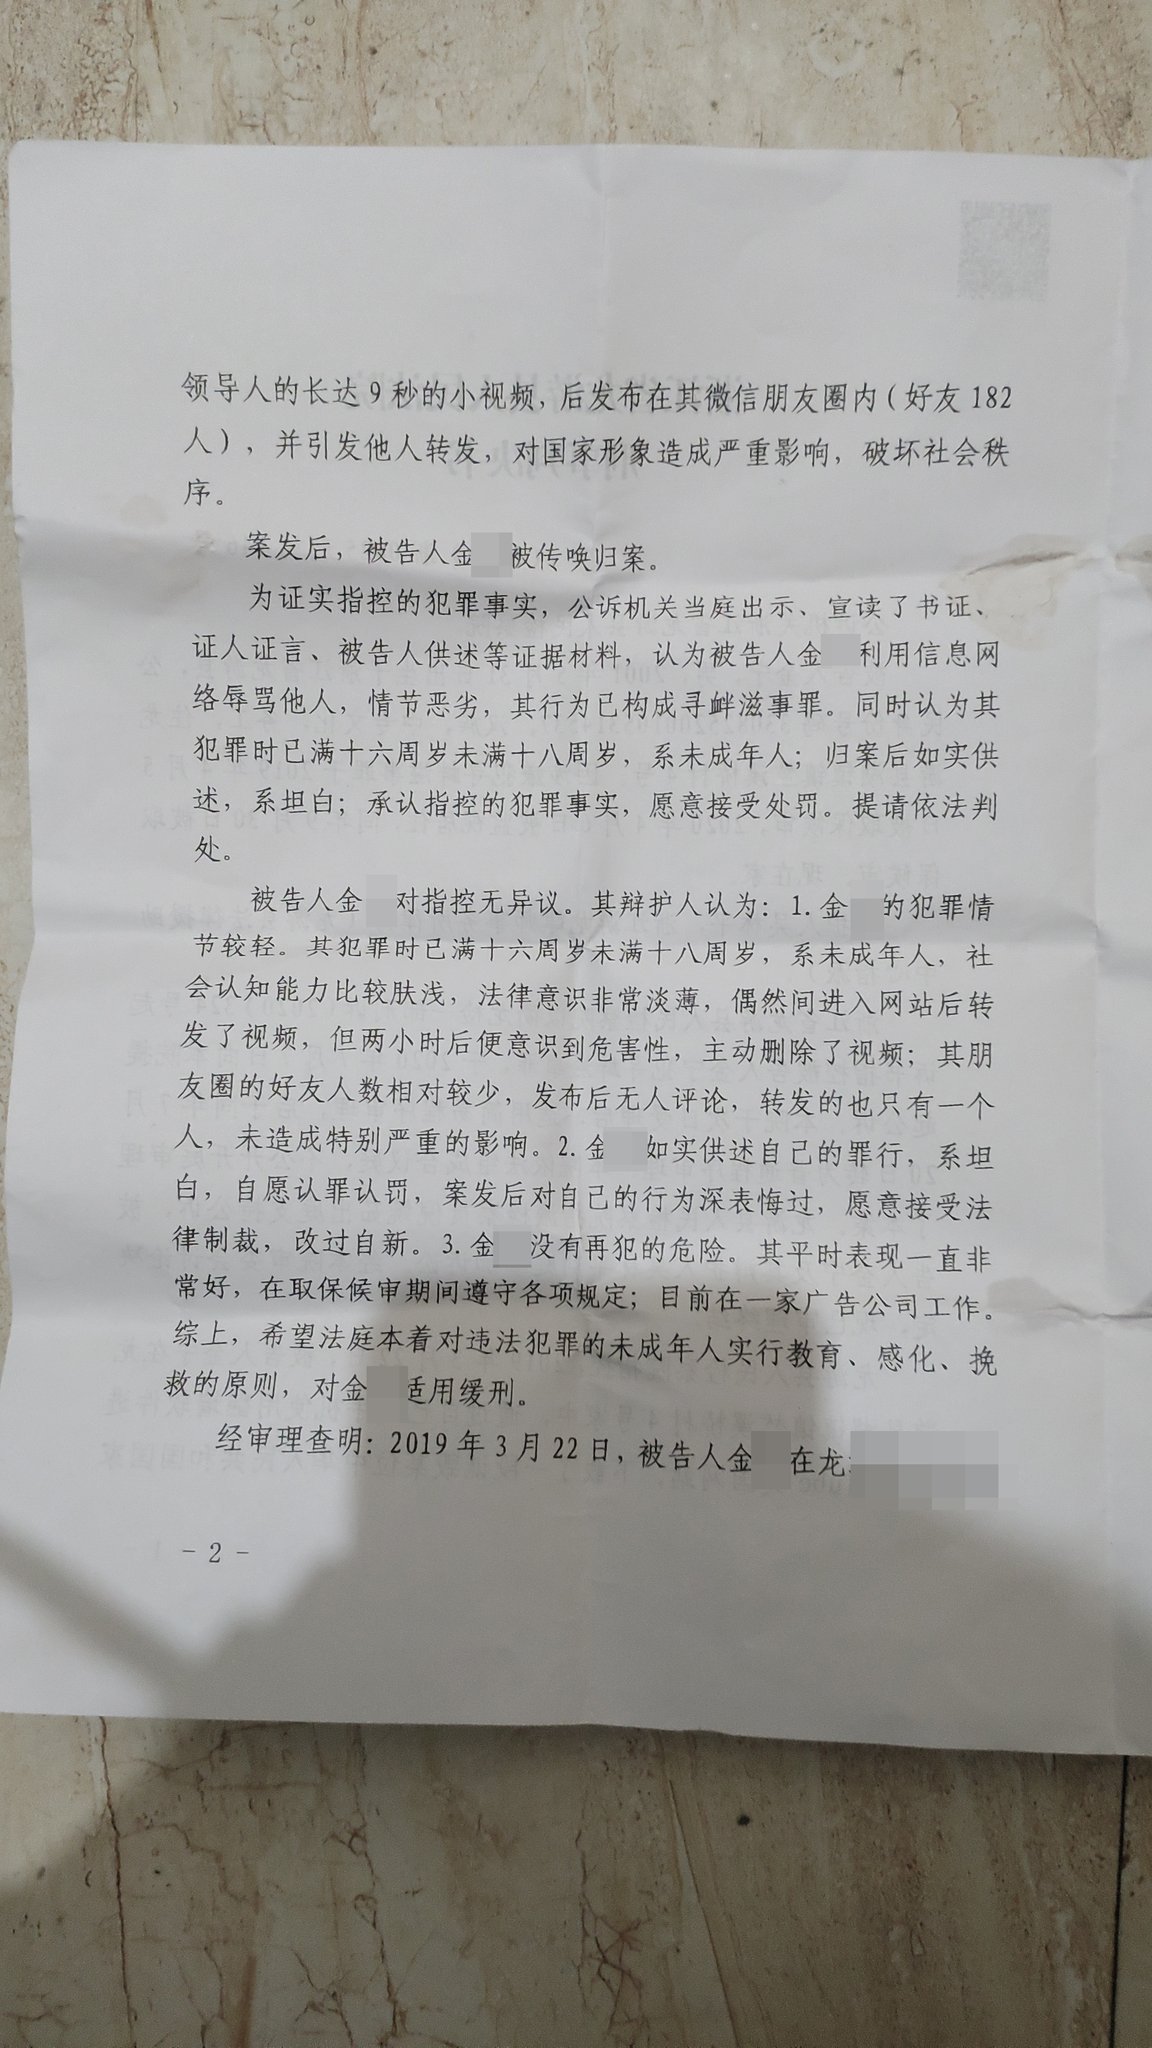 领导人的长达9秒的小视频，后发布在其微信朋友圈内（好友182
人），并引发他人转发，对国家形象造成严重影响，破坏社会秩
序。
案发后，被告人金 被传唤归案。
为证实指控的犯罪事实，公诉机关当庭出示、宣读了书证、
证人证言、被告人供述等证据材料，认为被告人金 利用信息网
络辱骂他人，情节恶劣，其行为已构成寻衅滋事罪。同时认为其
犯罪时已满十六周岁未满十八周岁，系未成年人；归案后如实供
述，系坦白；承认指控的犯罪事实，愿意接受处罚。提请依法判
处。
被告人金 对指控无异议。其辩护人认为：1.金 的犯罪情
节较轻。其犯罪时已满十六周岁未满十八周岁，系未成年人，社
会认知能力比较肤浅，法律意识非常淡薄，偶然间进入网站后转
发了视频，但两小时后便意识到危害性，主动删除了视频；其朋
友圈的好友人数相对较少，发布后无人评论，转发的也只有一个
人，未造成特别严重的影响。2.金 如实供述自己的罪行，系坦
白，自愿认罪认罚，案发后对自己的行为深表悔过，愿意接受法
律制裁，改过自新。3.金 没有再犯的危险。其平时表现一直非
常好，在取保候审期间遵守各项规定；目前在一家广告公司工作。
综上，希望法庭本着对违法犯罪的未成年人实行教育、感化、挽
救的原则，对金 适用缓刑。
经审理查明：2019年3月22日，被告人金 在龙
- 2 -